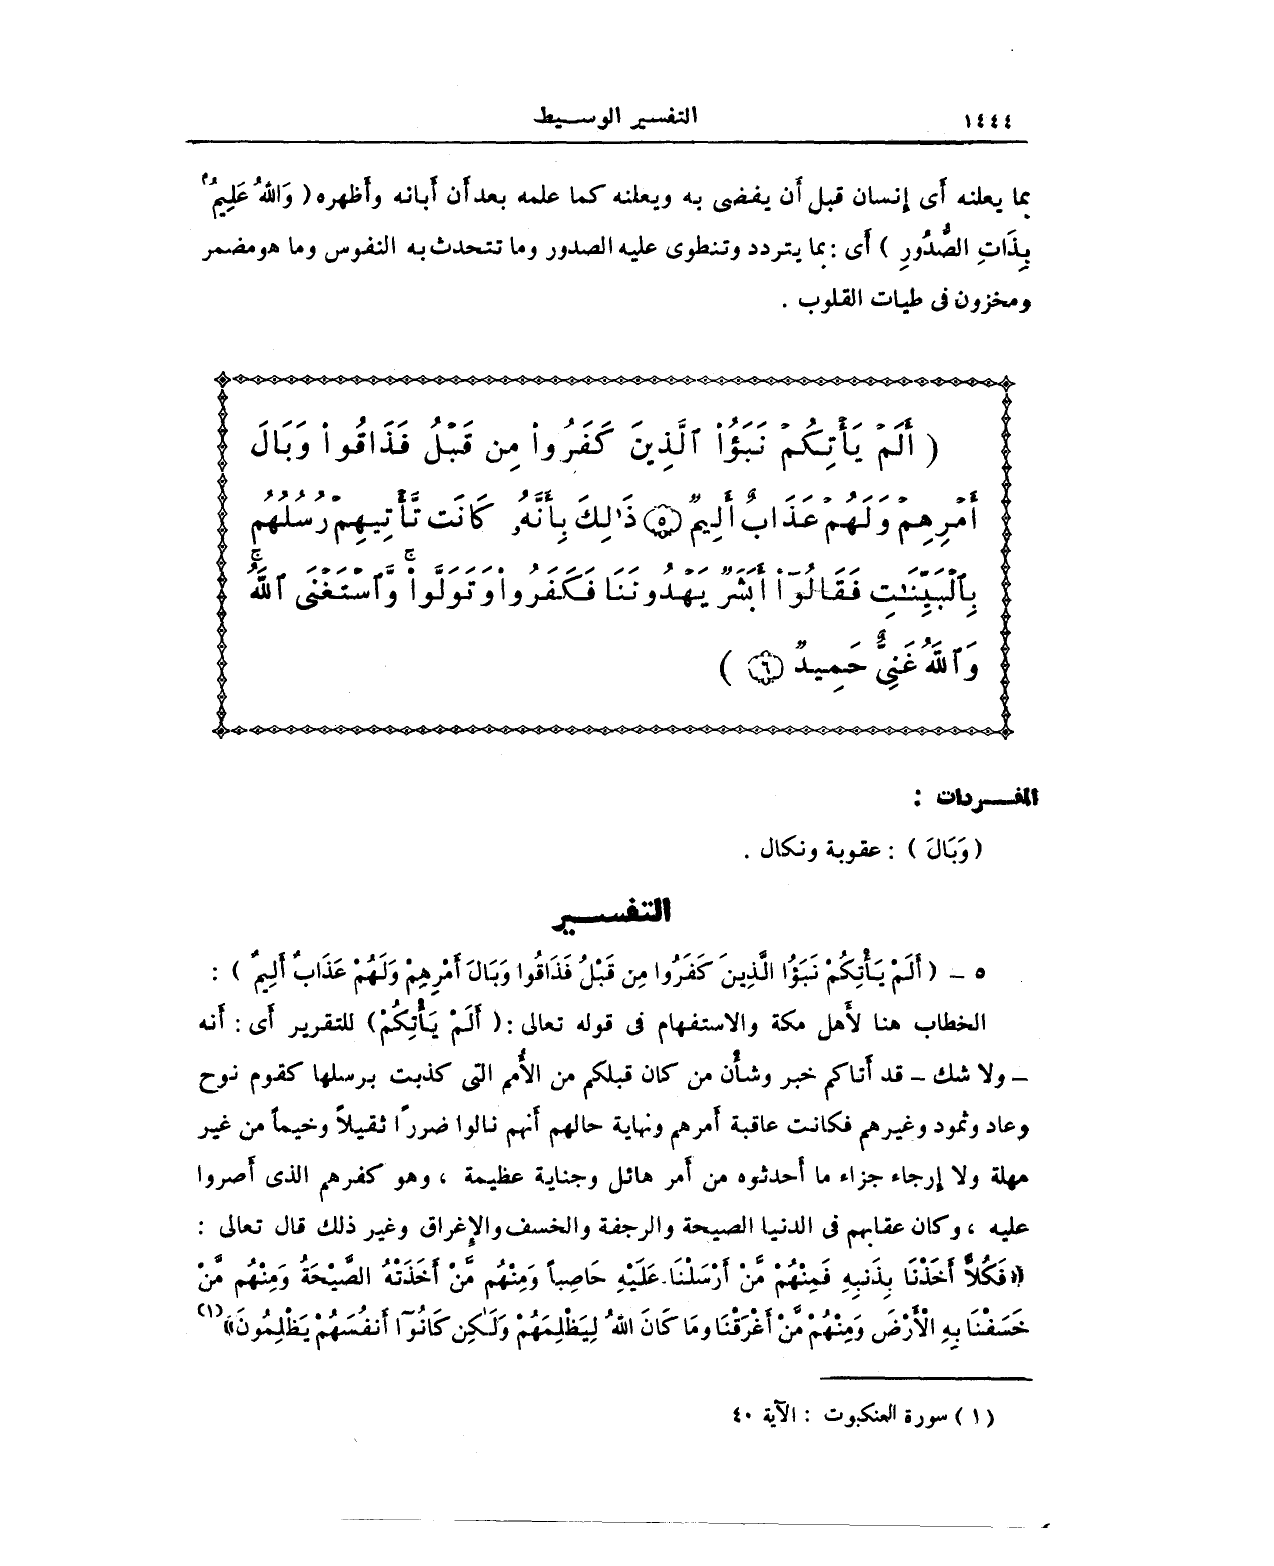 ١٤٤٤
التفسير الوسيط
بما يعلنه أى إنسان قبل أن يفضى به ويعلنه كما علمه بعد أن أبانه وأظهره ( وَاللهُ عَلِيمٌ
بِذَاتِ الصُّدُورِ ) أى : بما يتردد وتنطوى عليه الصدور وما تتحدث به النفوس وما هو مضمر
ومخزون فى طيات القلوب .
( أَلَمْ يَأْتِكُمْ نَبَؤُاْ ٱلَّذِينَ كَفَرُواْ مِن قَبْلُ فَذَاقُواْ وَبَالَ
أَمْرِهِمْ وَلَهُمْ عَذَابٌ أَلِيمٌ ۝٥ ذَٰلِكَ بِأَنَّهُۥ كَانَت تَّأْتِيهِمْ رُسُلُهُم
بِٱلْبَيِّنَٰتِ فَقَالُوٓاْ أَبَشَرٌ يَهْدُونَنَا فَكَفَرُواْ وَتَوَلَّواْ ۚ وَّٱسْتَغْنَى ٱللَّهُ ۚ
وَٱللَّهُ غَنِىٌّ حَمِيدٌ ۝٦ )
المفـردات :
( وَبَالَ ) : عقوبة ونكال .
التفسـير
٥ - ( أَلَمْ يَأْتِكُمْ نَبَؤُا الَّذِينَ كَفَرُوا مِن قَبْلُ فَذَاقُوا وَبَالَ أَمْرِهِمْ وَلَهُمْ عَذَابٌ أَلِيمٌ ) :
الخطاب هنا لأهل مكة والاستفهام فى قوله تعالى : ( أَلَمْ يَأْتِكُمْ ) للتقرير أى : أنه
- ولا شك - قد أتاكم خبر وشأن من كان قبلكم من الأمم التى كذبت برسلها كقوم نوح
وعاد وثمود وغيرهم فكانت عاقبة أمرهم ونهاية حالهم أنهم نالوا ضررًا ثقيلاً وخيماً من غير
مهلة ولا إرجاء جزاء ما أحدثوه من أمر هائل وجناية عظيمة ، وهو كفرهم الذى أصروا
عليه ، وكان عقابهم فى الدنيا الصيحة والرجفة والخسف والإغراق وغير ذلك قال تعالى :
« فَكُلاًّ أَخَذْنَا بِذَنبِهِ فَمِنْهُمْ مَّنْ أَرْسَلْنَا عَلَيْهِ حَاصِباً وَمِنْهُم مَّنْ أَخَذَتْهُ الصَّيْحَةُ وَمِنْهُم مَّنْ
خَسَفْنَا بِهِ الْأَرْضَ وَمِنْهُمْ مَّنْ أَغْرَقْنَا وَمَا كَانَ اللهُ لِيَظْلِمَهُمْ وَلَٰكِن كَانُوٓا أَنفُسَهُمْ يَظْلِمُونَ » (١)
(١) سورة العنكبوت : الآية ٤٠